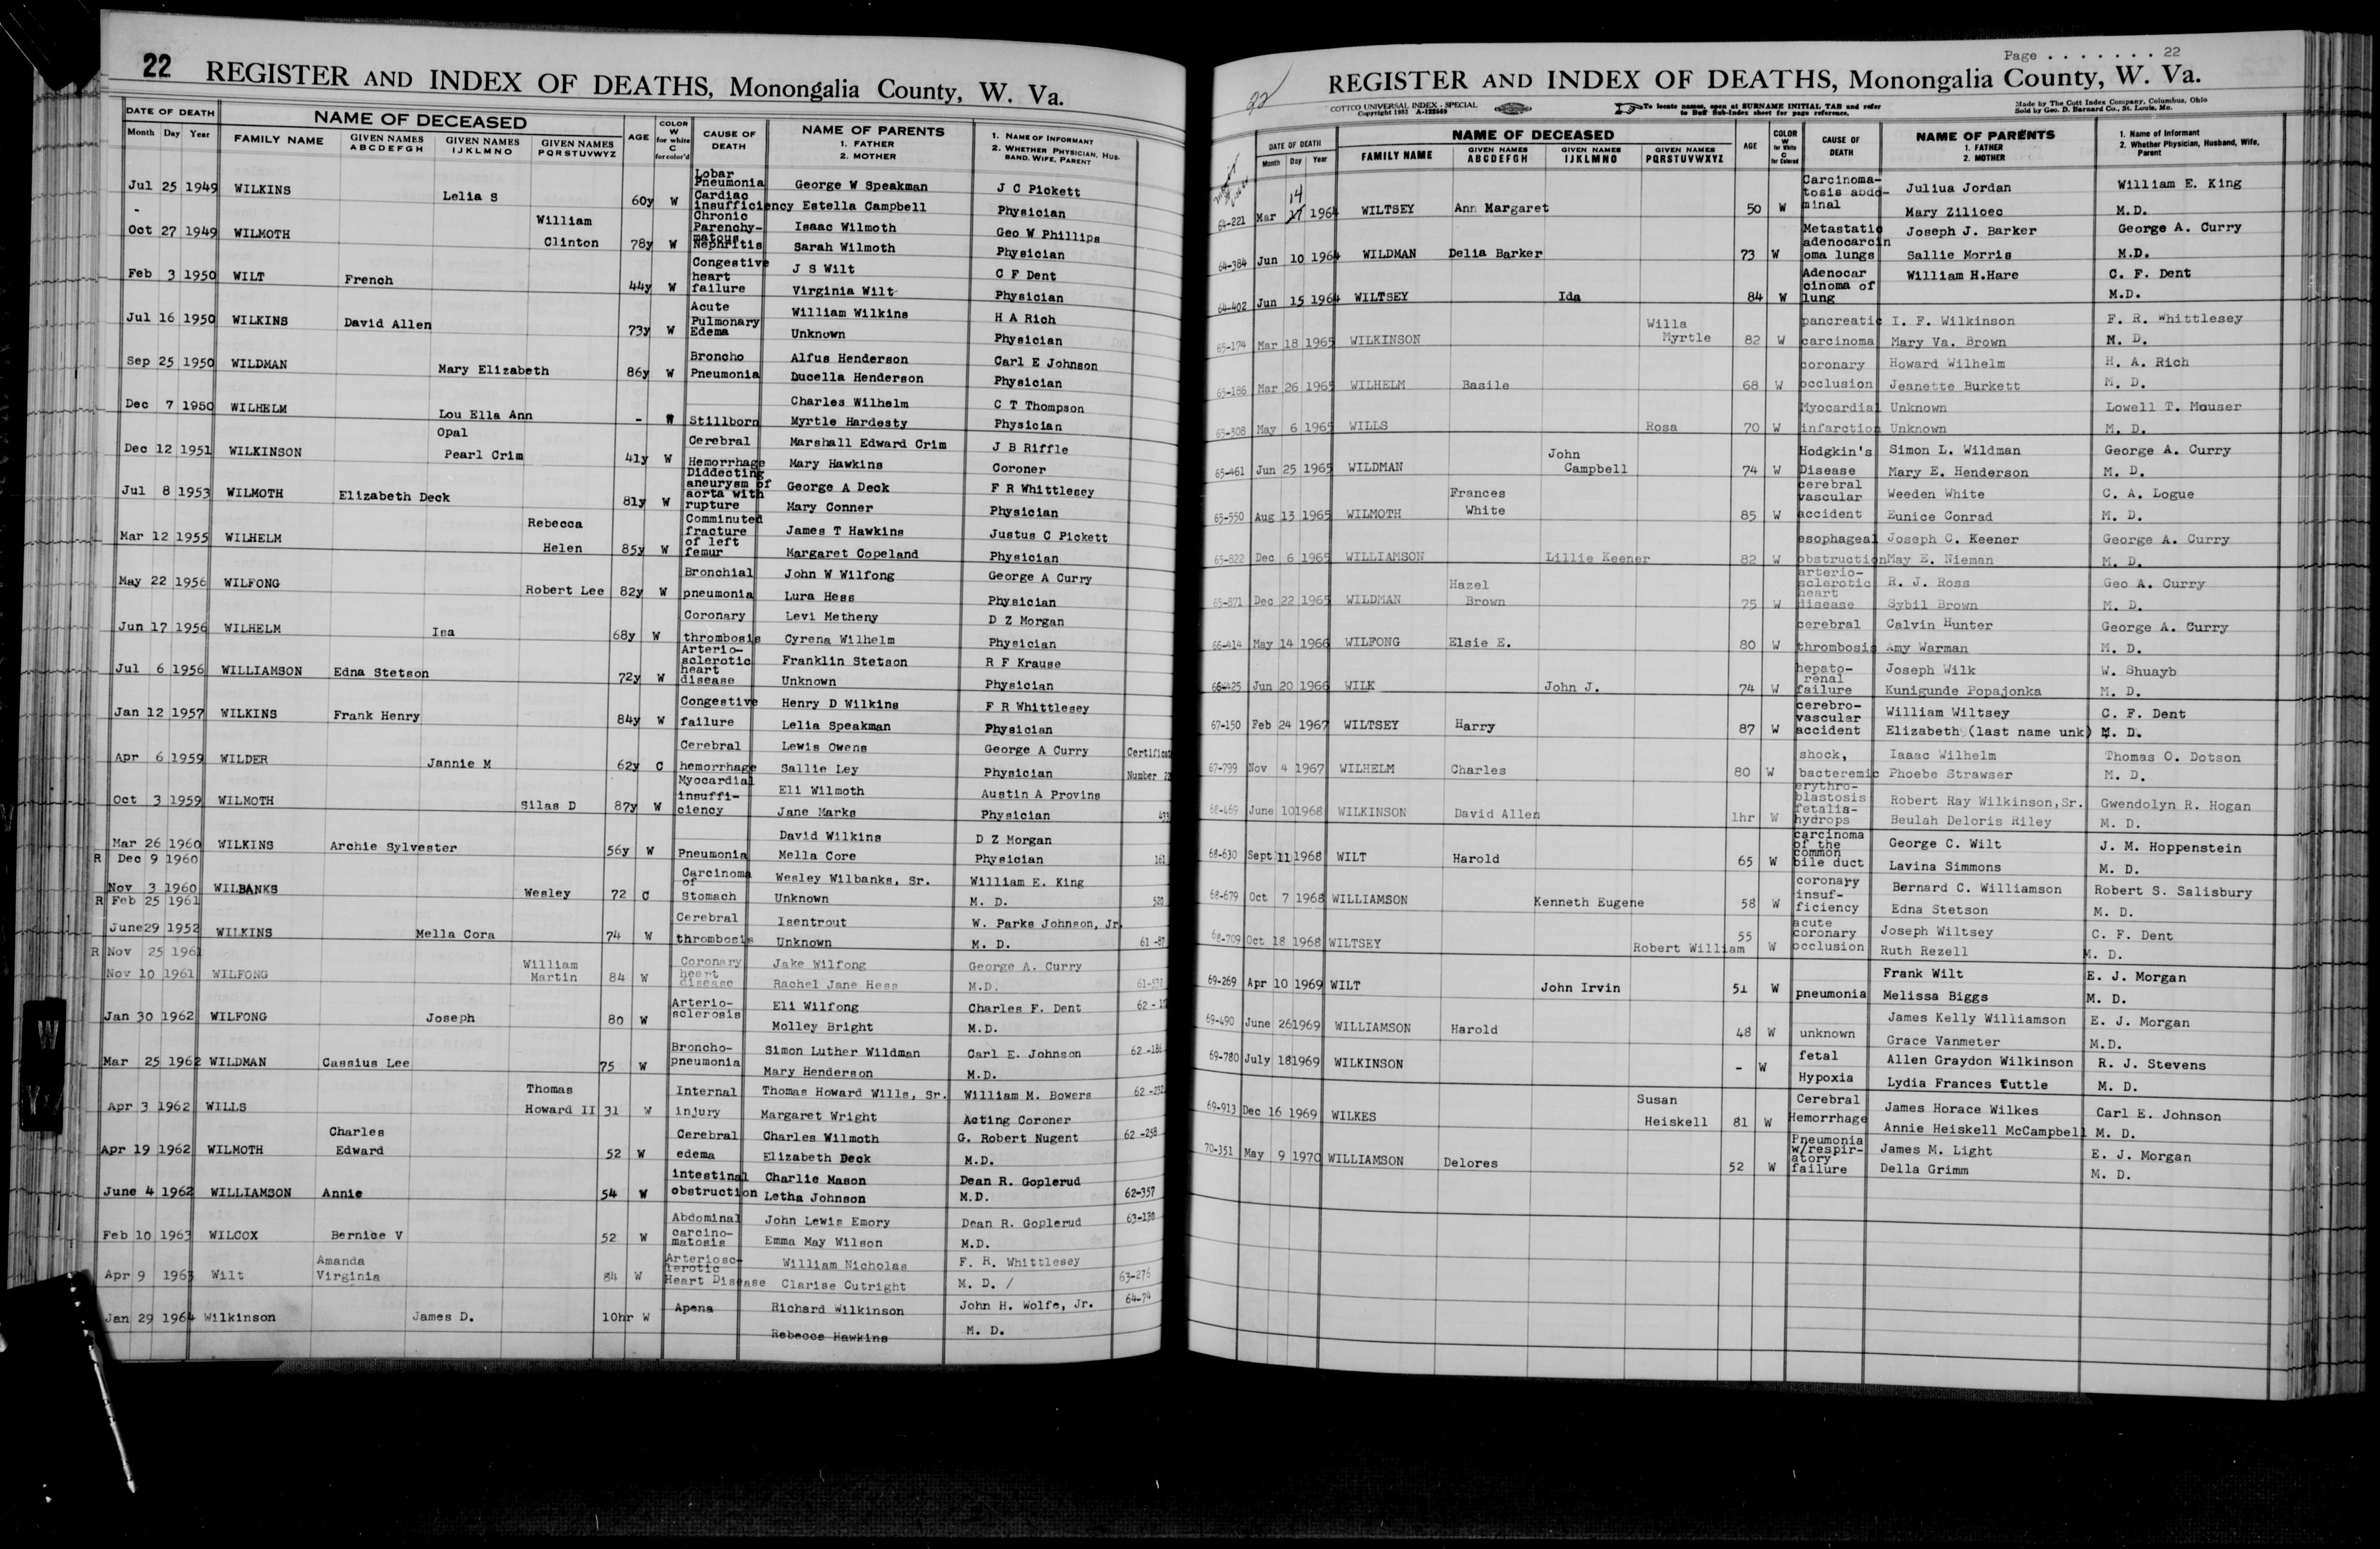 22 REGISTER AND INDEX OF DEATHS, Monongalia County, W. Va.
DATE OF DEATH NAME OF DECEASED AGE COLOR W for white C for color'd CAUSE OF DEATH NAME OF PARENTS 1. FATHER 2. MOTHER 1. NAME OF INFORMANT 2. WHETHER PHYSICIAN, HUSBAND, WIFE, PARENT
Month Day Year FAMILY NAME GIVEN NAMES ABCDEFGH GIVEN NAMES IJKLMNO GIVEN NAMES PQRSTUVWXYZ
Jul 25 1949 WILKINS Lelia S 60y W Lobar Pneumonia Cardiac insufficiency George W Speakman J C Pickett
Estella Campbell Physician
Oct 27 1949 WILMOTH William Clinton 78y W Chronic Parenchymatous Nephritis Isaac Wilmoth Geo W Phillips
Sarah Wilmoth Physician
Feb 3 1950 WILT French 44y W Congestive heart failure J S Wilt C F Dent
Virginia Wilt Physician
Jul 16 1950 WILKINS David Allen 73y W Acute Pulmonary Edema William Wilkins H A Rich
Unknown Physician
Sep 25 1950 WILDMAN Mary Elizabeth 86y W Broncho Pneumonia Alfus Henderson Carl E Johnson
Ducella Henderson Physician
Dec 7 1950 WILHELM Lou Ella Ann - W Stillborn Charles Wilhelm C T Thompson
Myrtle Hardesty Physician
Dec 12 1951 WILKINSON Opal Pearl Crim 41y W Cerebral Hemorrhage Marshall Edward Crim J B Riffle
Mary Hawkins Coroner
Jul 8 1953 WILMOTH Elizabeth Deck 81y W Diddecting aneurysm of aorta with rupture George A Deck F R Whittlesey
Mary Conner Physician
Mar 12 1955 WILHELM Rebecca Helen 85y W Comminuted fracture of left femur James T Hawkins Justus C Pickett
Margaret Copeland Physician
May 22 1956 WILFONG Robert Lee 82y W Bronchial pneumonia John W Wilfong George A Curry
Lura Hess Physician
Jun 17 1956 WILHELM Isa 68y W Coronary thrombosis Levi Metheny D Z Morgan
Cyrena Wilhelm Physician
Jul 6 1956 WILLIAMSON Edna Stetson 72y W Arterio-sclerotic heart disease Franklin Stetson R F Krause
Unknown Physician
Jan 12 1957 WILKINS Frank Henry 84y W Congestive failure Henry D Wilkins F R Whittlesey
Lelia Speakman Physician
Apr 6 1959 WILDER Jannie M 62y C Cerebral hemorrhage Lewis Owens George A Curry Certificat
Sallie Ley Physician Number 22
Oct 3 1959 WILMOTH Silas D 87y W Myocardial insuffi-ciency Eli Wilmoth Austin A Provins
Jane Marks Physician
Mar 26 1960 WILKINS Archie Sylvester 56y W Pneumonia David Wilkins D Z Morgan
R Dec 9 1960 Mella Core Physician 161
Nov 3 1960 WILBANKS Wesley 72 C Carcinoma of Stomach Wesley Wilbanks, Sr. William E. King
R Feb 25 1961 Unknown M. D. 520
June 29 1952 WILKINS Mella Cora 74 W Cerebral thrombosis Isentrout W. Parks Johnson, Jr.
R Nov 25 1961 Unknown M. D. 61-87
Nov 10 1961 WILFONG William Martin 84 W Coronary heart disease Jake Wilfong George A. Curry
Rachel Jane Hess M.D.
Jan 30 1962 WILFONG Joseph 80 W Arterio-sclerosis Eli Wilfong Charles F. Dent
Molley Bright M.D.
Mar 25 1962 WILDMAN Cassius Lee 75 W Broncho-pneumonia Simon Luther Wildman Carl E. Johnson 62-186
Mary Henderson M.D.
Apr 3 1962 WILLS Thomas Howard II 31 W Internal injury Thomas Howard Wills, Sr. William M. Bowers 62-232
Margaret Wright Acting Coroner
Apr 19 1962 WILMOTH Charles Edward 52 W Cerebral edema Charles Wilmoth G. Robert Nugent 62-258
Elizabeth Deck M.D.
June 4 1962 WILLIAMSON Annie 54 W intestinal obstruction Charlie Mason Dean R. Goplerud
Letha Johnson M.D. 62-357
Feb 10 1963 WILCOX Bernice V 52 W Abdominal carcino-matosis John Lewis Emory Dean R. Goplerud 63-130
Emma May Wilson M.D.
Apr 9 1963 Wilt Amanda Virginia 84 W Arteriosc-terotic Heart Disease William Nicholas F. R. Whittlesey
Clarise Cutright M. D. / 63-276
Jan 29 1964 Wilkinson James D. 10hr W Apena Richard Wilkinson John H. Wolfe, Jr. 64-74
Rebecce Hawkins M. D.
W
Page . . . . . . . 22
22
REGISTER AND INDEX OF DEATHS, Monongalia County, W. Va.
COTTCO UNIVERSAL INDEX - SPECIAL
Copyright 1953 A-122569
To locate names, open at SURNAME INITIAL TAB and refer to Buff Sub-Index sheet for page reference.
Made by The Cott Index Company, Columbus, Ohio
Sold by Geo. D. Barnard Co., St. Louis, Mo.
DATE OF DEATH NAME OF DECEASED AGE COLOR W for White C for Colored CAUSE OF DEATH NAME OF PARENTS 1. FATHER 2. MOTHER 1. Name of Informant 2. Whether Physician, Husband, Wife, Parent
Month Day Year FAMILY NAME GIVEN NAMES ABCDEFGH GIVEN NAMES IJKLMNO GIVEN NAMES PQRSTUVWXYZ
64-221 Mar 14 1964 WILTSEY Ann Margaret 50 W Carcinoma-tosis abdo-minal Juliua Jordan William E. King
Mary Zilioec M.D.
64-384 Jun 10 1964 WILDMAN Delia Barker 73 W Metastatic adenocarcin oma lungs Joseph J. Barker George A. Curry
Sallie Morris M.D.
64-402 Jun 15 1964 WILTSEY Ida 84 W Adenocar cinoma of lung William H.Hare C. F. Dent
M.D.
65-174 Mar 18 1965 WILKINSON Willa Myrtle 82 W pancreatic carcinoma I. F. Wilkinson F. R. Whittlesey
Mary Va. Brown M. D.
65-186 Mar 26 1965 WILHELM Basile 68 W coronary occlusion Howard Wilhelm H. A. Rich
Jeanette Burkett M. D.
65-308 May 6 1965 WILLS Rosa 70 W Myocardial infarction Unknown Lowell T. Mouser
Unknown M. D.
65-461 Jun 25 1965 WILDMAN John Campbell 74 W Hodgkin's Disease Simon L. Wildman George A. Curry
Mary E. Henderson M. D.
65-550 Aug 13 1965 WILMOTH Frances White 85 W cerebral vascular accident Weeden White C. A. Logue
Eunice Conrad M. D.
65-822 Dec 6 1965 WILLIAMSON Lillie Keener 82 W esophageal obstruction Joseph C. Keener George A. Curry
May E. Nieman M. D.
65-871 Dec 22 1965 WILDMAN Hazel Brown 75 W arterio-sclerotic heart disease R. J. Ross Geo A. Curry
Sybil Brown M. D.
66-414 May 14 1966 WILFONG Elsie E. 80 W cerebral thrombosis Calvin Hunter George A. Curry
Amy Warman M. D.
66-425 Jun 20 1966 WILK John J. 74 W hepato-renal failure Joseph Wilk W. Shuayb
Kunigunde Popajonka M. D.
67-150 Feb 24 1967 WILTSEY Harry 87 W cerebro-vascular accident William Wiltsey C. F. Dent
Elizabeth (last name unk) M. D.
67-799 Nov 4 1967 WILHELM Charles 80 W shock, bacteremic Isaac Wilhelm Thomas O. Dotson
Phoebe Strawser M. D.
68-469 June 10 1968 WILKINSON David Allen 1hr W erythro-blastosis fetalis-hydrops Robert Ray Wilkinson,Sr. Gwendolyn R. Hogan
Beulah Deloris Riley M. D.
68-630 Sept 11 1968 WILT Harold 65 W carcinoma of the common bile duct George C. Wilt J. M. Hoppenstein
Lavina Simmons M. D.
68-679 Oct 7 1968 WILLIAMSON Kenneth Eugene 58 W coronary insuf-ficiency Bernard C. Williamson Robert S. Salisbury
Edna Stetson M. D.
68-709 Oct 18 1968 WILTSEY Robert William 55 W acute coronary occlusion Joseph Wiltsey C. F. Dent
Ruth Rezell M. D.
69-269 Apr 10 1969 WILT John Irvin 51 W pneumonia Frank Wilt E. J. Morgan
Melissa Biggs M. D.
69-490 June 26 1969 WILLIAMSON Harold 48 W unknown James Kelly Williamson E. J. Morgan
Grace Vanmeter M.D.
69-780 July 18 1969 WILKINSON - W fetal Hypoxia Allen Graydon Wilkinson R. J. Stevens
Lydia Frances Tuttle M. D.
69-913 Dec 16 1969 WILKES Susan Heiskell 81 W Cerebral Hemorrhage James Horace Wilkes Carl E. Johnson
Annie Heiskell McCampbell M. D.
70-351 May 9 1970 WILLIAMSON Delores 52 W Pneumonia w/respir-atory failure James M. Light E. J. Morgan
Della Grimm M. D.